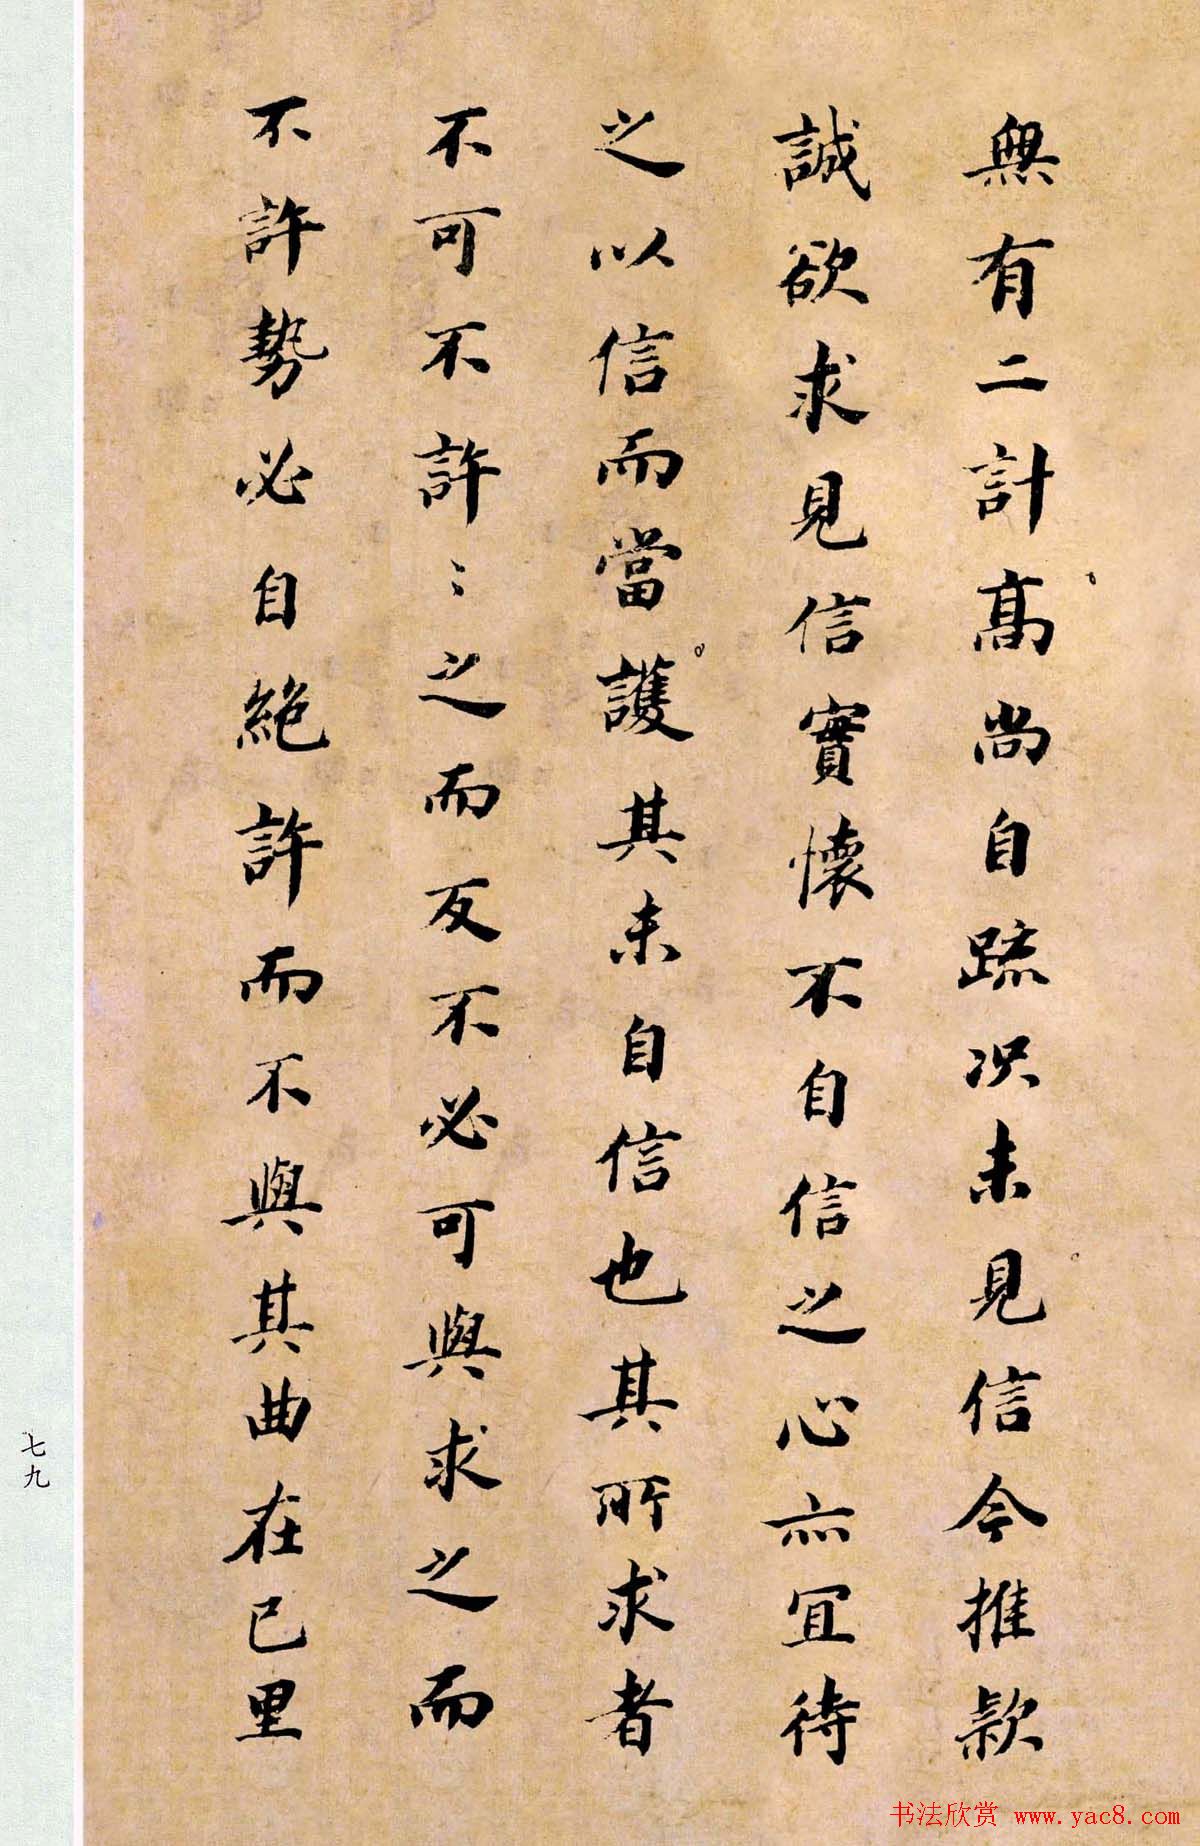 無有二計高尚自疏况未見信今推款
誠欲求見信實懷不自信之心亦宜待
之以信而當護其未自信也其所求者
不可不許〻之而反不必可與求之而
不許勢必自絕許而不與其曲在己里
七九
书法欣赏 www.yac8.com